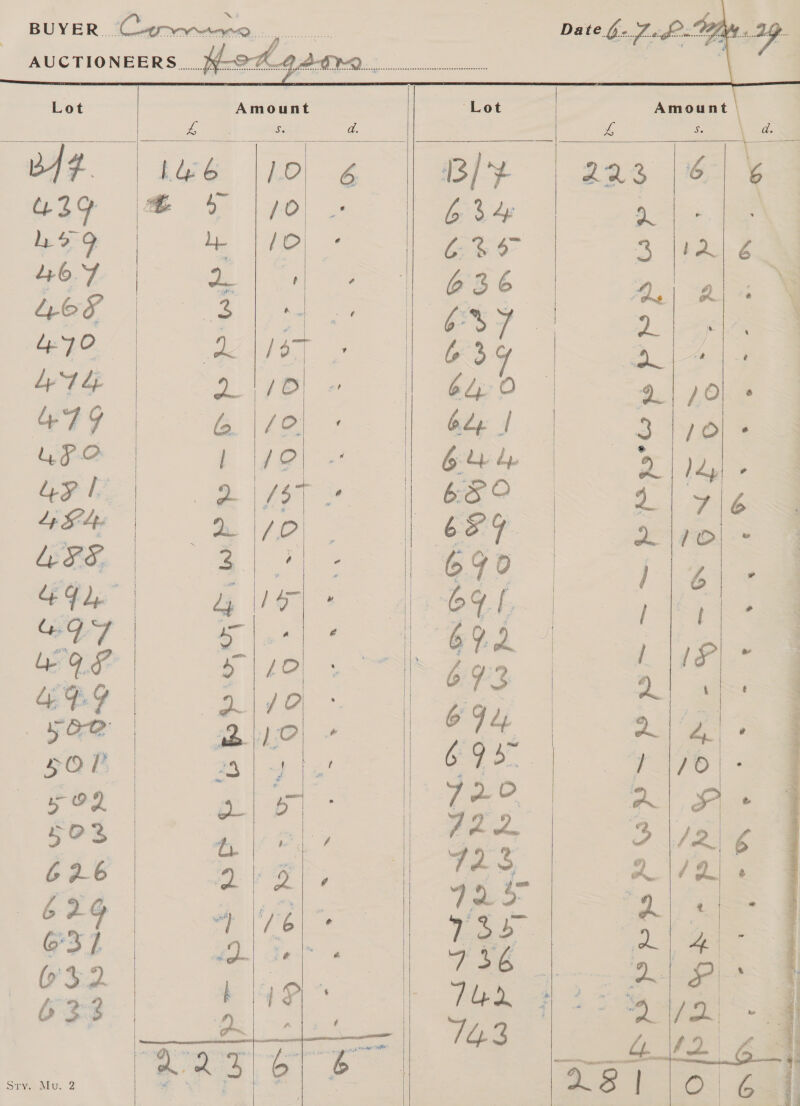 BUYER Comins
Date 6-7-8-Mar. 29
AUCTIONEERS Hodgsons
Lot Amount
£ s. d.
B/F. 146 10 6
439 5 10 -
459 4 10 -
467 2 - -
468 3 - -
470 2 15 -
474 2 10 -
479 6 10 -
480 1 10 -
481 2 15 -
484 2 10 -
488 3 - -
494 4 15 -
497 5 - -
498 5 10 -
499 2 10 -
500 3 10 -
501 3 - -
502 2 5 -
503 4 - -
626 2 2 -
629 1 16 -
631 2 - -
632 1 18 -
633 2 - -
223 6 6
Lot Amount
£ s. d.
B/F 223 6 6
634 2 - -
635 3 12 6
636 2 2 -
637 2 - -
639 2 - -
640 2 10 -
641 3 10 -
644 2 14 -
680 2 7 6
689 2 10 -
690 1 6 -
691 1 1 -
692 1 18 -
693 2 - -
694 2 4 -
695 1 10 -
720 2 8 -
722 3 12 6
723 2 12 -
725 2 - -
735 2 4 -
736 2 8 -
742 2 12 -
743 4 12 6
281 0 6
Srv. Mu. 2